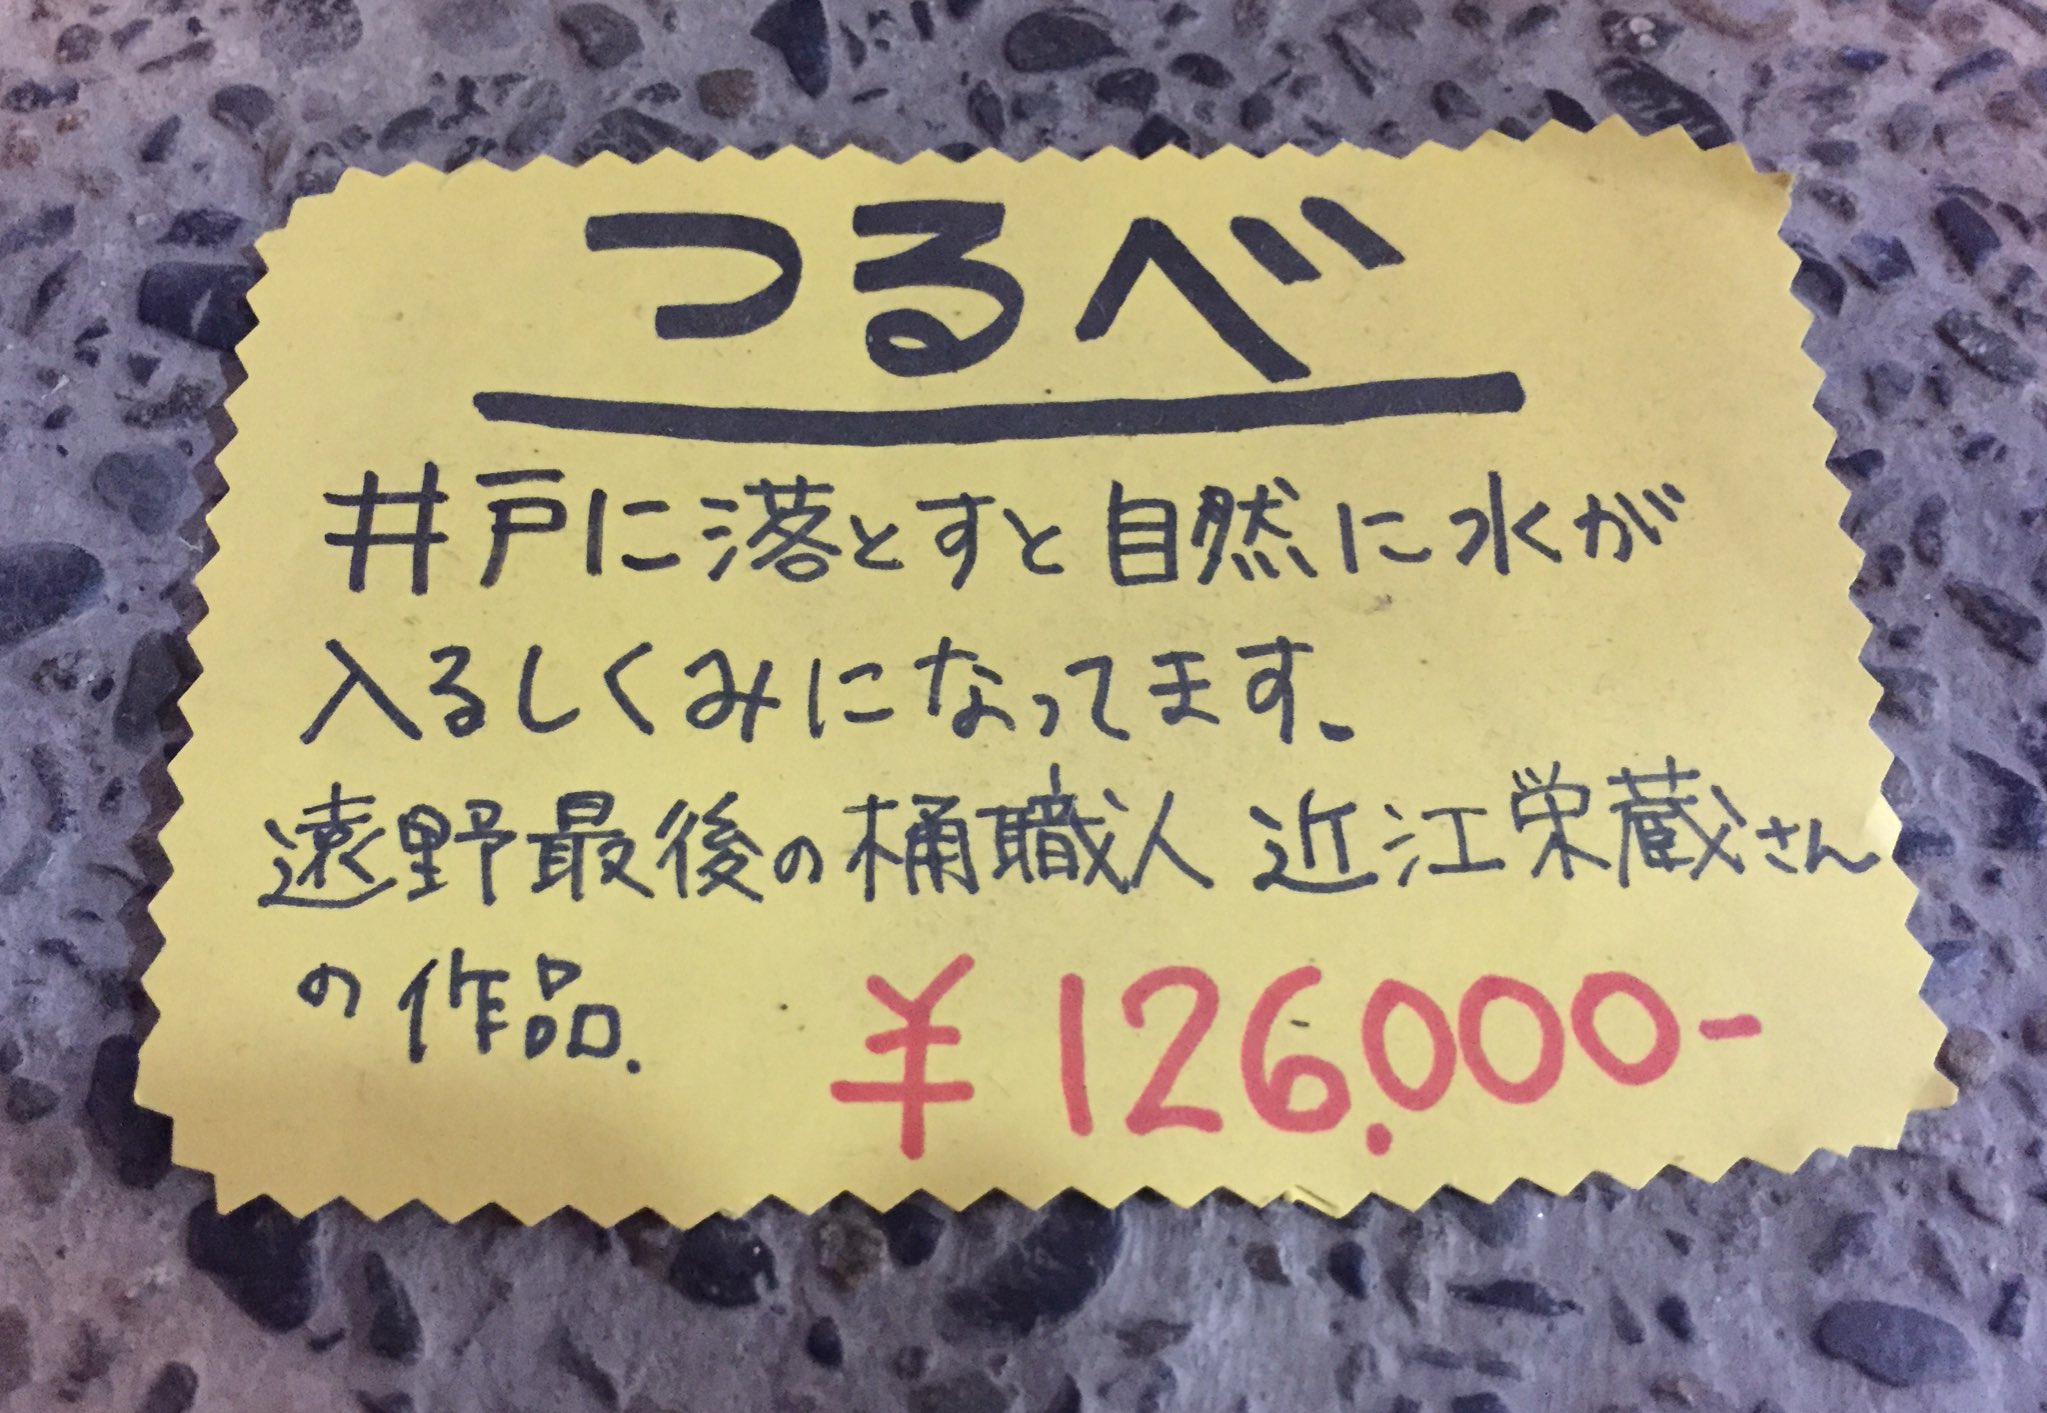 つるべ
井戸に落とすと自然に水が
入るしくみになってます。
遠野最後の桶職人 近江栄蔵さん
の作品.
¥126.000-